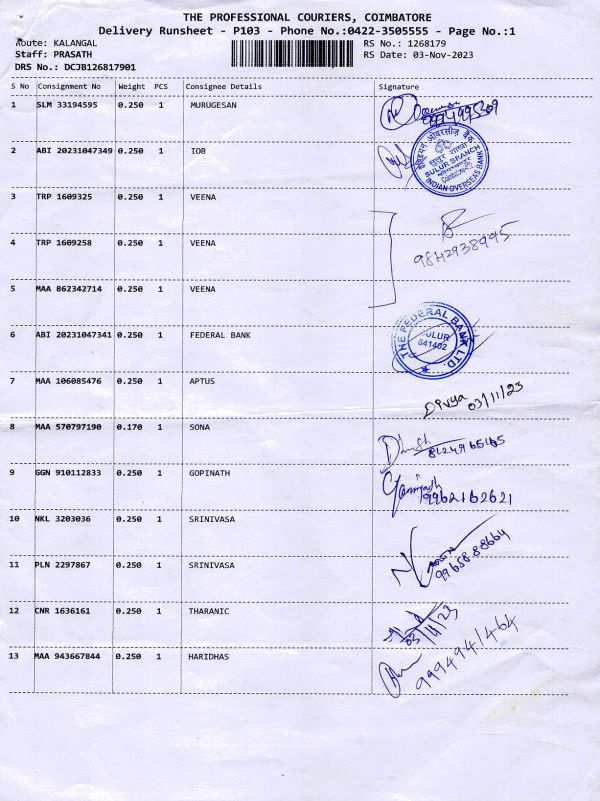 THE PROFESSIONAL COURIERS, COIMBATORE
Delivery Runsheet - P103 - Phone No.:0422-3505555 - Page No.:1
Route: KALANGAL
RS No.: 1268179
Staff: PRASATH
RS Date: 03-Nov-2023
DRS No.: DCJB126817901
S No Consignment No Weight PCS Consignee Details Signature
1 SLM 33194595 0.250 1 MURUGESAN
2 ABI 20231047349 0.250 1 IOB
इंडियन ओवरसीज़ बैंक
सुलूर शाखा
SULUR BRANCH
INDIAN OVERSEAS BANK
3 TRP 1609325 0.250 1 VEENA
4 TRP 1609258 0.250 1 VEENA
9842938995
5 MAA 862342714 0.250 1 VEENA
6 ABI 20231047341 0.250 1 FEDERAL BANK
THE FEDERAL BANK LTD.
SULUR
641402
7 MAA 106085476 0.250 1 APTUS
Divya 03/11/23
8 MAA 570797190 0.170 1 SONA
8124965165
9 GGN 910112833 0.250 1 GOPINATH
Gopinath
9962162621
10 NKL 3203036 0.250 1 SRINIVASA
11 PLN 2297867 0.250 1 SRINIVASA
9965888664
12 CNR 1636161 0.250 1 THARANIC
03/11/23
13 MAA 943667844 0.250 1 HARIDHAS
9994941464